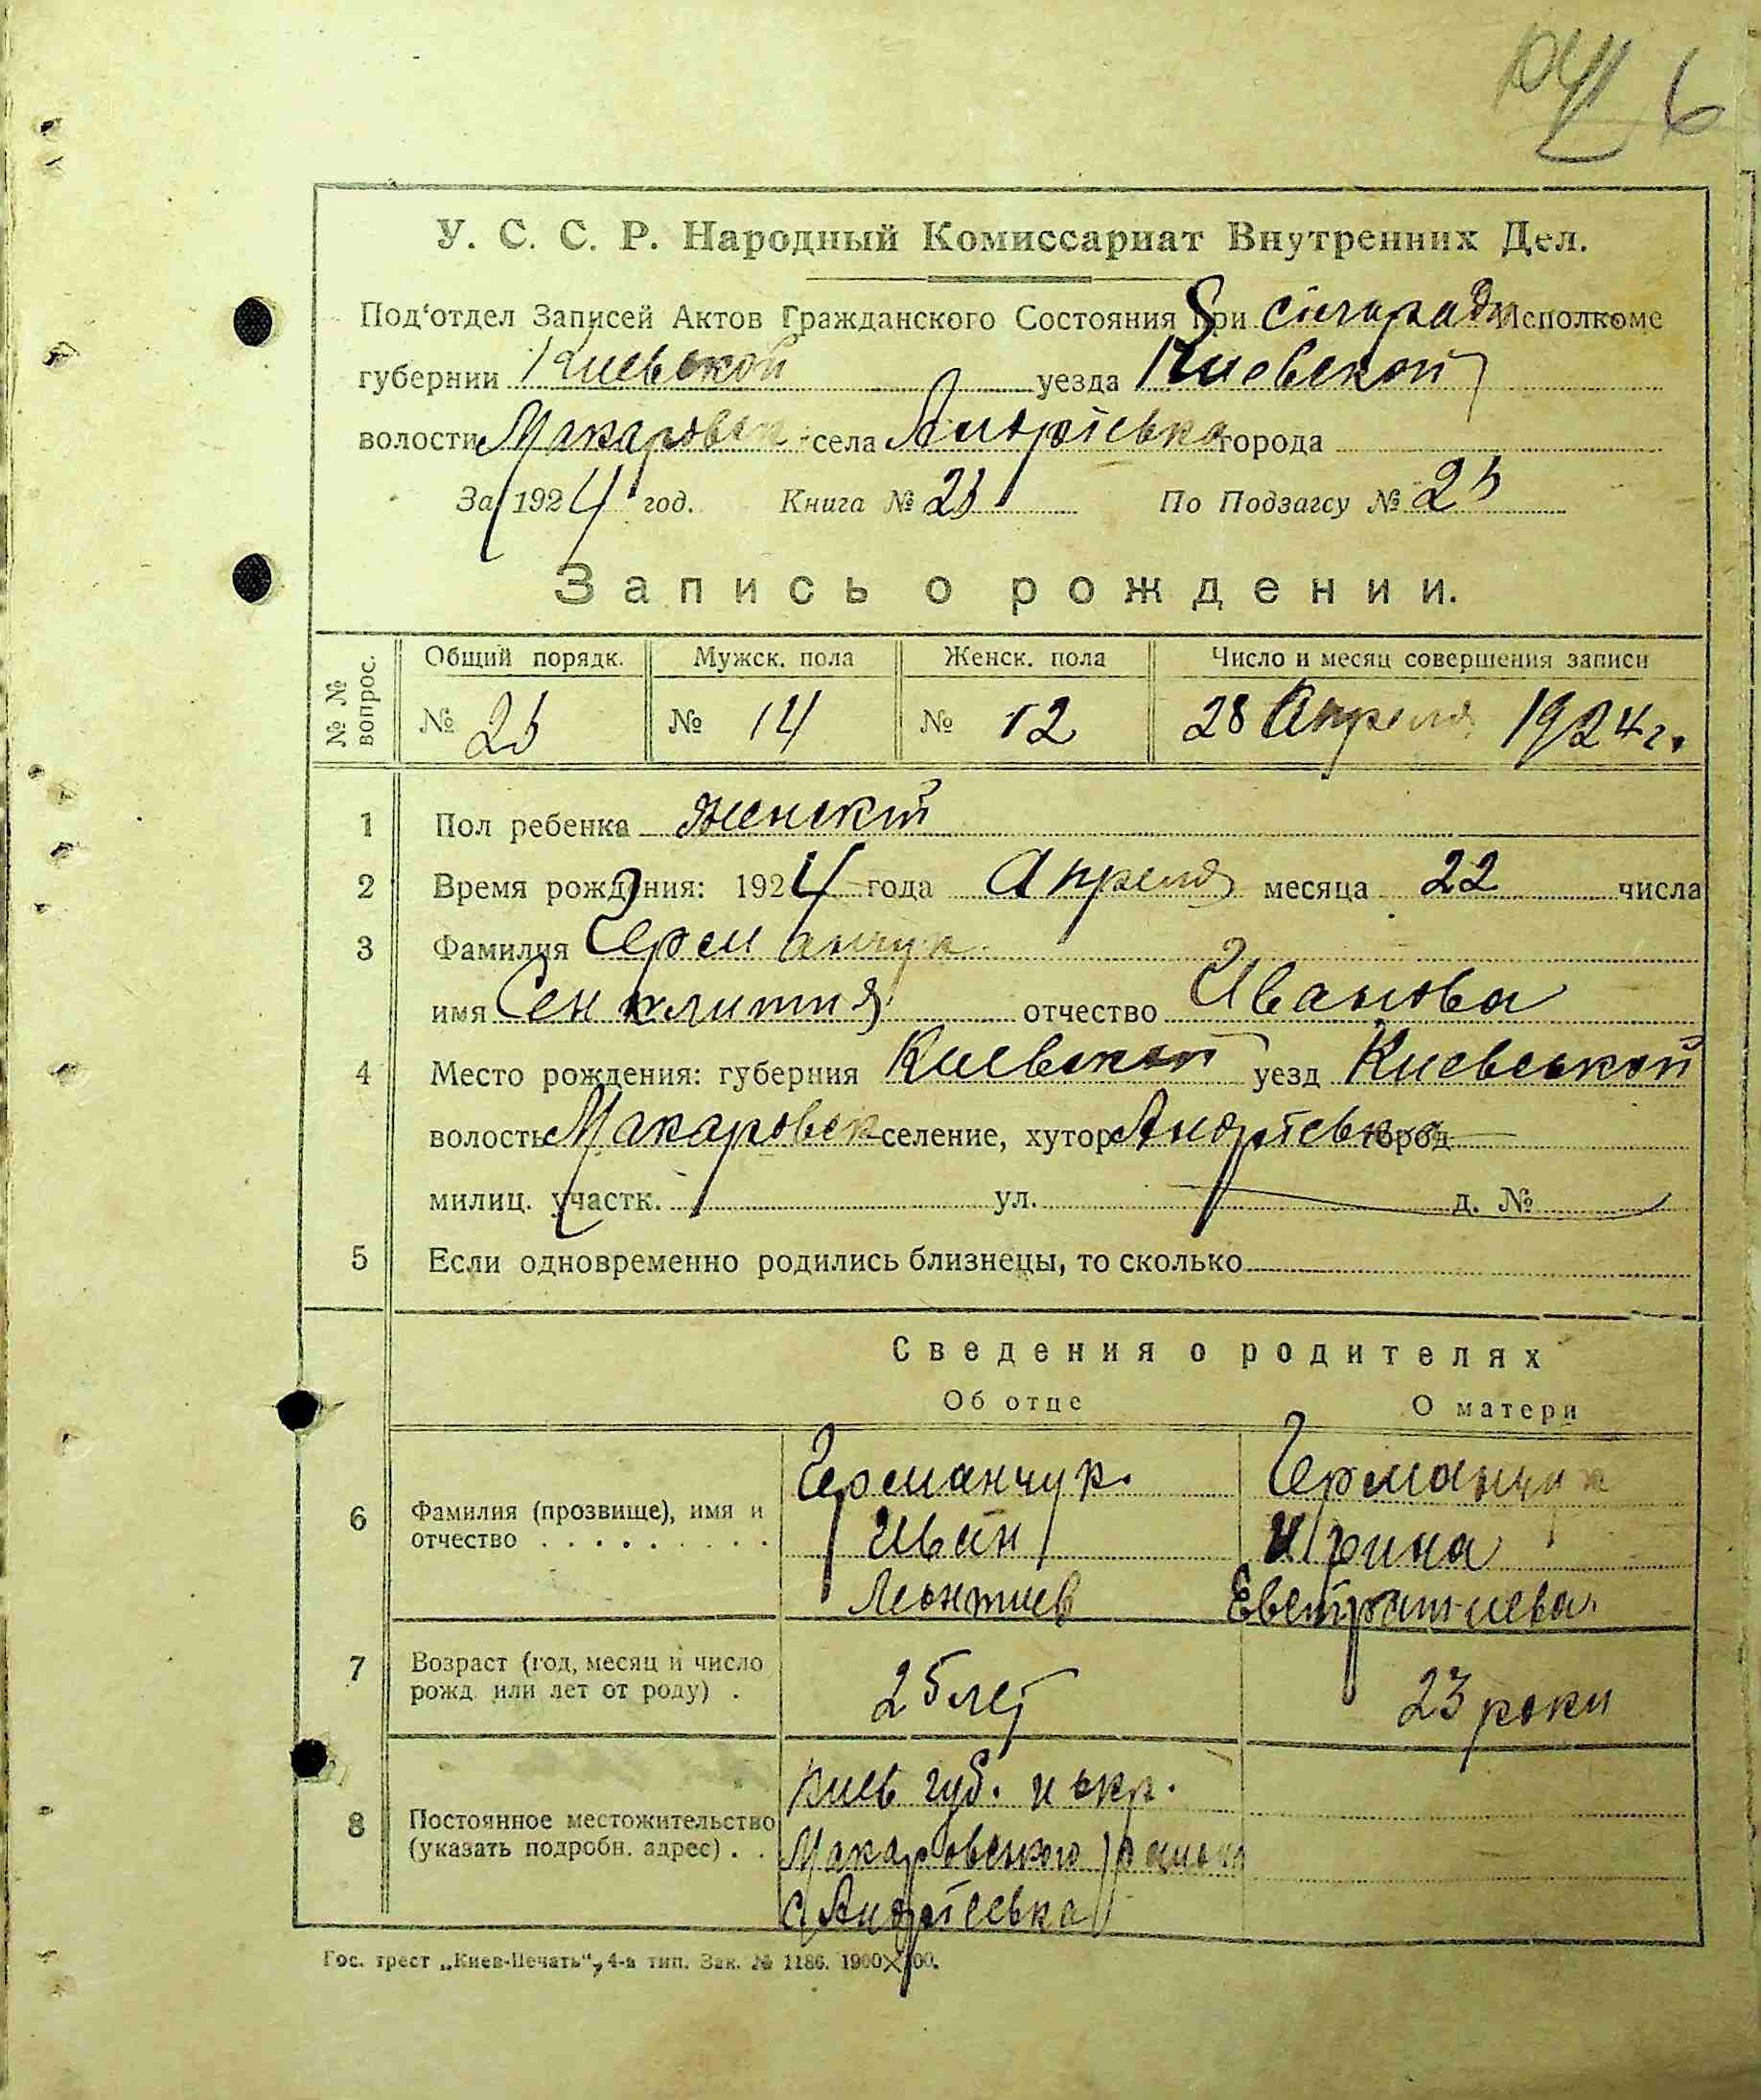 6
У. С. С. Р. Народный Комиссариат Внутренних Дел.
Под'отдел Записей Актов Гражданского Состояния при сільраді Исполкоме
губернии Киевской уезда Киевской
волости Макаровск села Андріевка города
За 1924 год. Книга № 25 По Подзагсу № 25
Запись о рождении.
№ № вопрос. Общий порядк. Мужск. пола Женск. пола Число и месяц совершения записи
№ 25 № 14 № 12 28 Апреля 1924 г.
1 Пол ребенка женскій
2 Время рождения: 1924 года Апреля месяца 22 числа
3 Фамилия Германчук
имя Сенклития отчество Иванова
4 Место рождения: губерния Киевской уезд Киевськой
волость Макаровск селение, хутор Андріевка город
милиц. участк. ул. д. №
5 Если одновременно родились близнецы, то сколько
Сведения о родителях
Об отце О матери
6 Фамилия (прозвище), имя и отчество Германчук. Германчук
Иван Ирина
Леонтиев Евстратиева.
7 Возраст (год, месяц и число рожд. или лет от роду) 25 лет 23 роки
8 Постоянное местожительство (указать подробн. адрес) Киев губ. и окр.
Макаровського района
с. Андріевка
Гос. трест „Киев-Печать“, 4-а тип. Зак. № 1186.